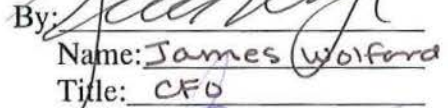 By:
Name: James Wolford
Title: CFO